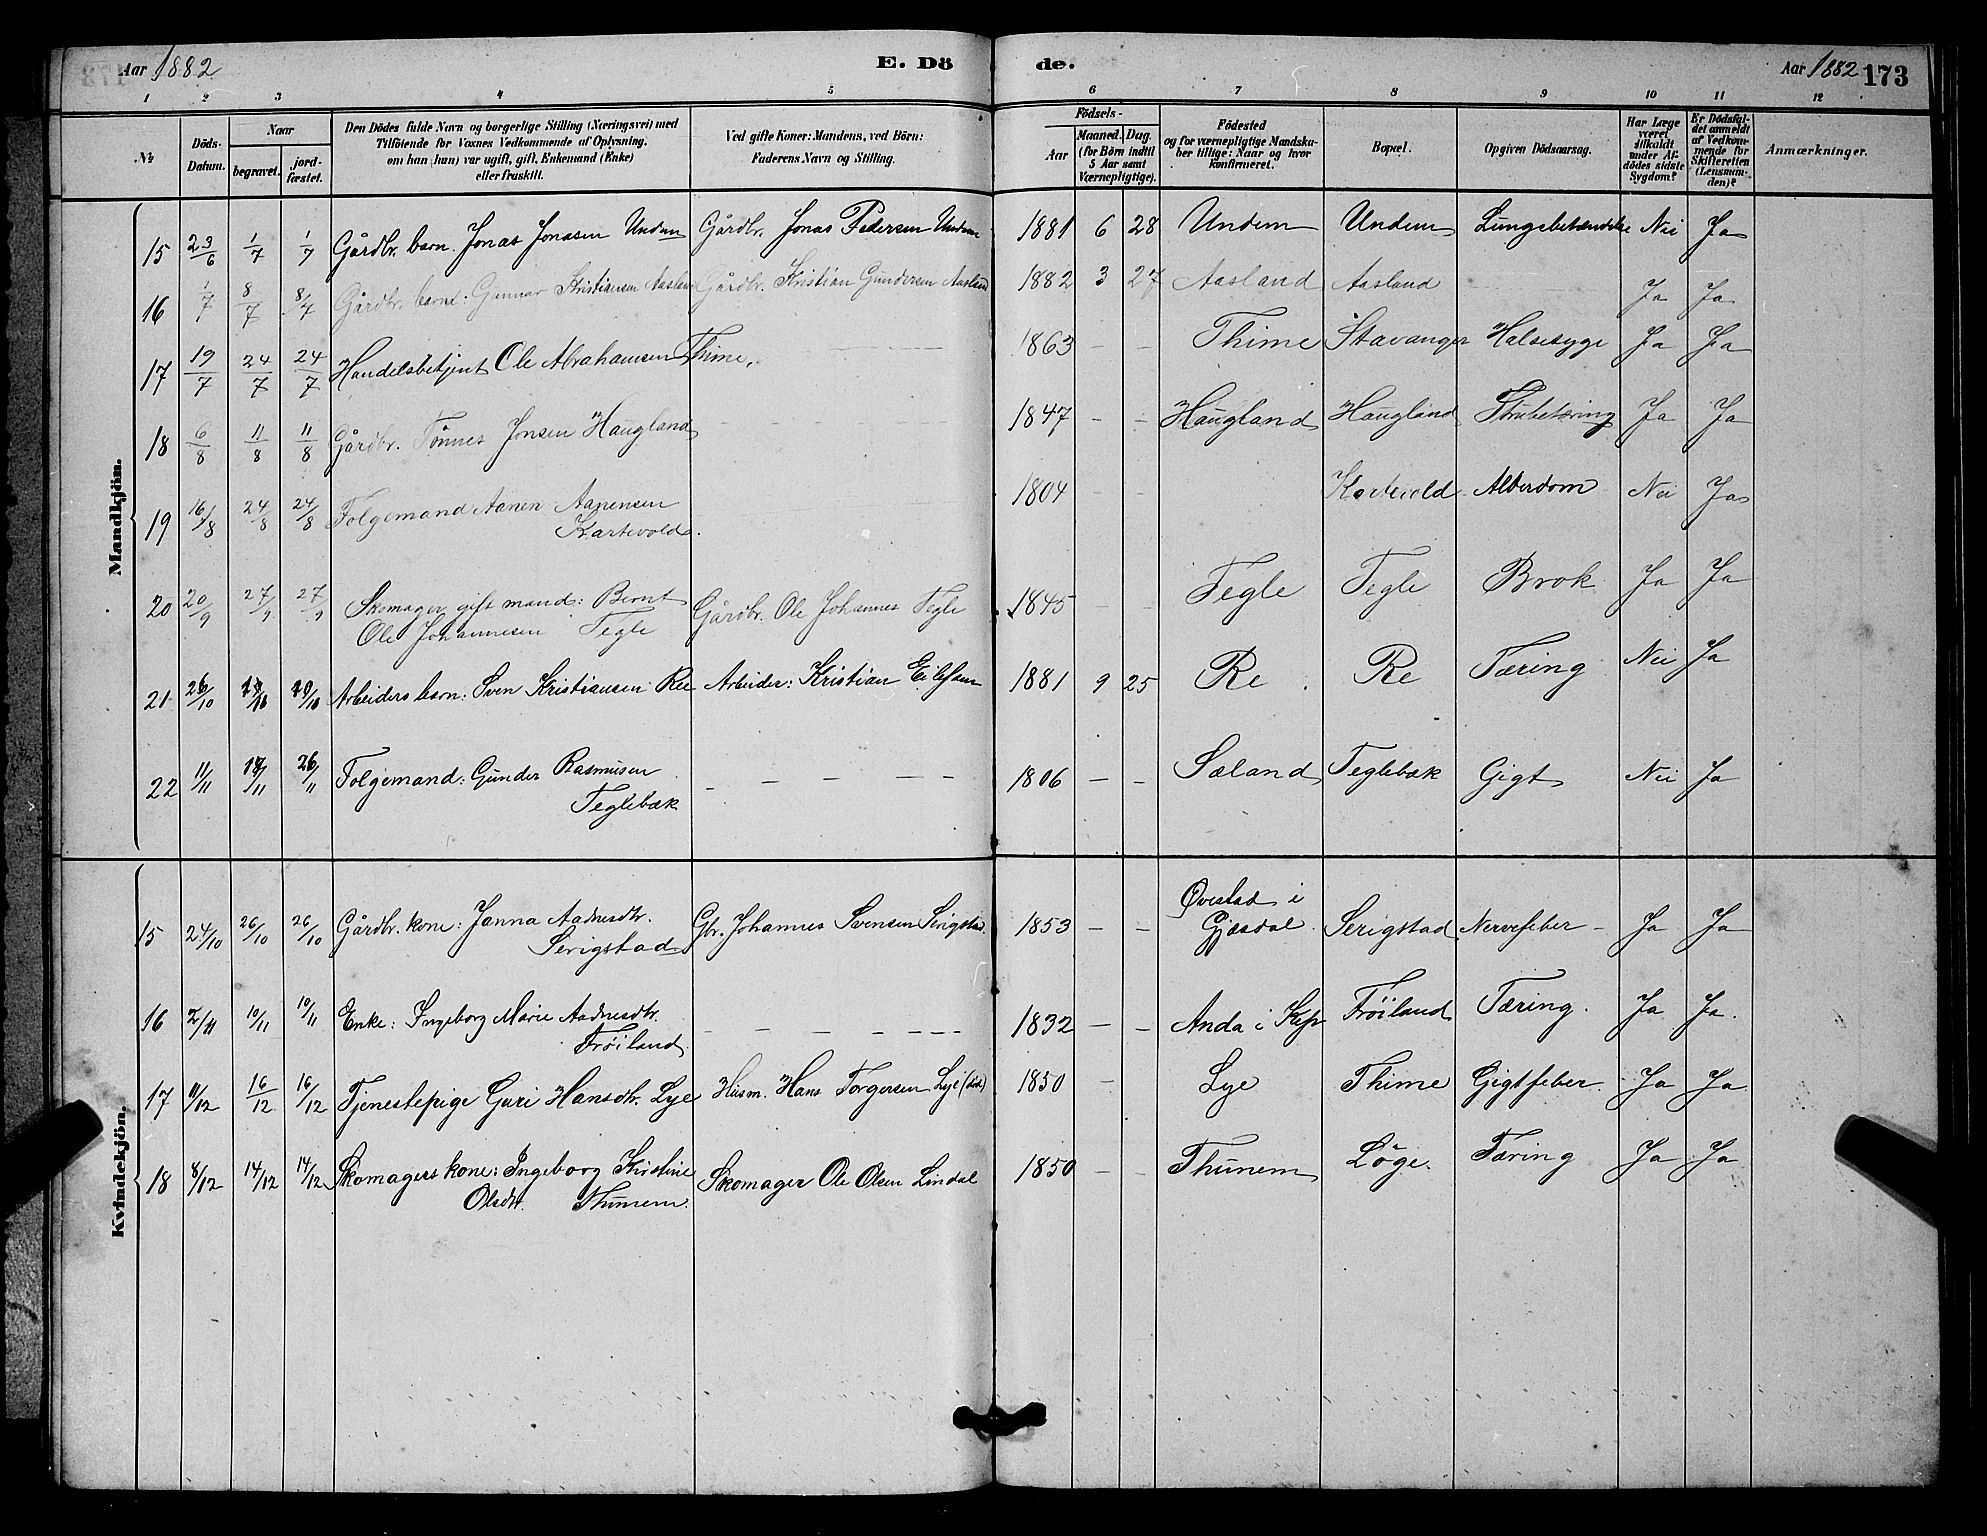 Aar 1882 E. Dö de. Aar 1882 173
1 2 3 4 5 6 7 8 9 10 11 12
№ Döds-Datum. Naar begravet. jord-fæstet. Den Dödes fulde Navn og borgerlige Stilling (Næringsvei) med Tilföiende for Voxnes Vedkommende af Oplysning, om han (hun) var ugift, gift, Enkemand (Enke) eller fraskilt. Ved gifte Koner: Mandens, ved Börn: Faderens Navn og Stilling. Födsels- Aar Maaned. Dag. (for Börn indtil 5 Aar samt Værnepligtige). Födested og for værnepligtige Mandskaber tillige: Naar og hvor konfirmeret. Bopæl. Opgiven Dödsaarsag. Har Læge været tilkaldt under Afdödes sidste Sygdom? Er Dödsfaldet anmeldt af Vedkommende for Skifteretten (Lensmanden)? Anmærkninger.
Mandkjön.
15 23/6 1/7 1/7 Gårdbr. barn. Jonas Jonasen Undem Gårdbr. Jonas Pedersen Undem 1881 6 28 Undem Undem Lungebetændelse Nei Ja
16 1/7 8/7 8/7 Gårdbr. barn: Gunnar Kristiansen Aasland Gårdbr. Kristian Gundersen Aasland 1882 3 27 Aasland Aasland Ja Ja
17 19/7 24/7 24/7 Handelsbetjent Ole Abrahamsen Thime. 1863 – – Thime Stavanger Halsesyge Ja Ja
18 6/8 11/8 11/8 Gårdbr. Tönnes Jonsen Haugland 1847 – – Haugland Haugland Strubetæring Ja Ja
19 16/8 24/8 24/8 Folgemand Aanen Aanensen 1804 – – Kartevold Alderdom Nei Ja
Kartevold.
20 20/9 27/9 27/9 Skomager gift mand: Bernt Gårdbr. Ole Johannes Tegle 1845 – – Tegle Tegle Brok Ja Ja
Ole Johannesen Tegle
21 26/10 Arbeiders barn: Sven Kristiansen Ree Arbeider: Kristian Eilefsen 1881 9 25 Re Re Tæring Nei Ja
22 11/11 26/11 Folgemand: Gunder Rasmusen – – – – 1806 – – Sæland Teglebæk Gigt Nei Ja
Teglebæk
Kvindekjön.
15 24/10 26/10 26/10 Gårdbr. kone: Janna Aadnesdtr. Gbr. Johannes Svensen Serigstad. 1853 – – Øvestad i Gjæsdal Serigstad Nervefeber – Ja Ja
Serigstad
16 2/11 10/11 10/11 Enke: Ingeborg Marie Aadnesdtr. – – – – – – – 1832 – – Anda i Klep Fröiland Tæring. Ja Ja.
Fröiland.
17 11/12 16/12 16/12 Tjenestepige Guri Hansdtr. Lye Husm. Hans Torgersen Lye (död) 1850 – Lye Thime Gigtfeber. Ja Ja
18 8/12 14/12 14/12 Skomagers kone: Ingeborg Kirstine Skomager Ole Olsen Lindal 1850 – – Thunem Löge. Tæring Ja Ja
Olsdtr. Thunem.